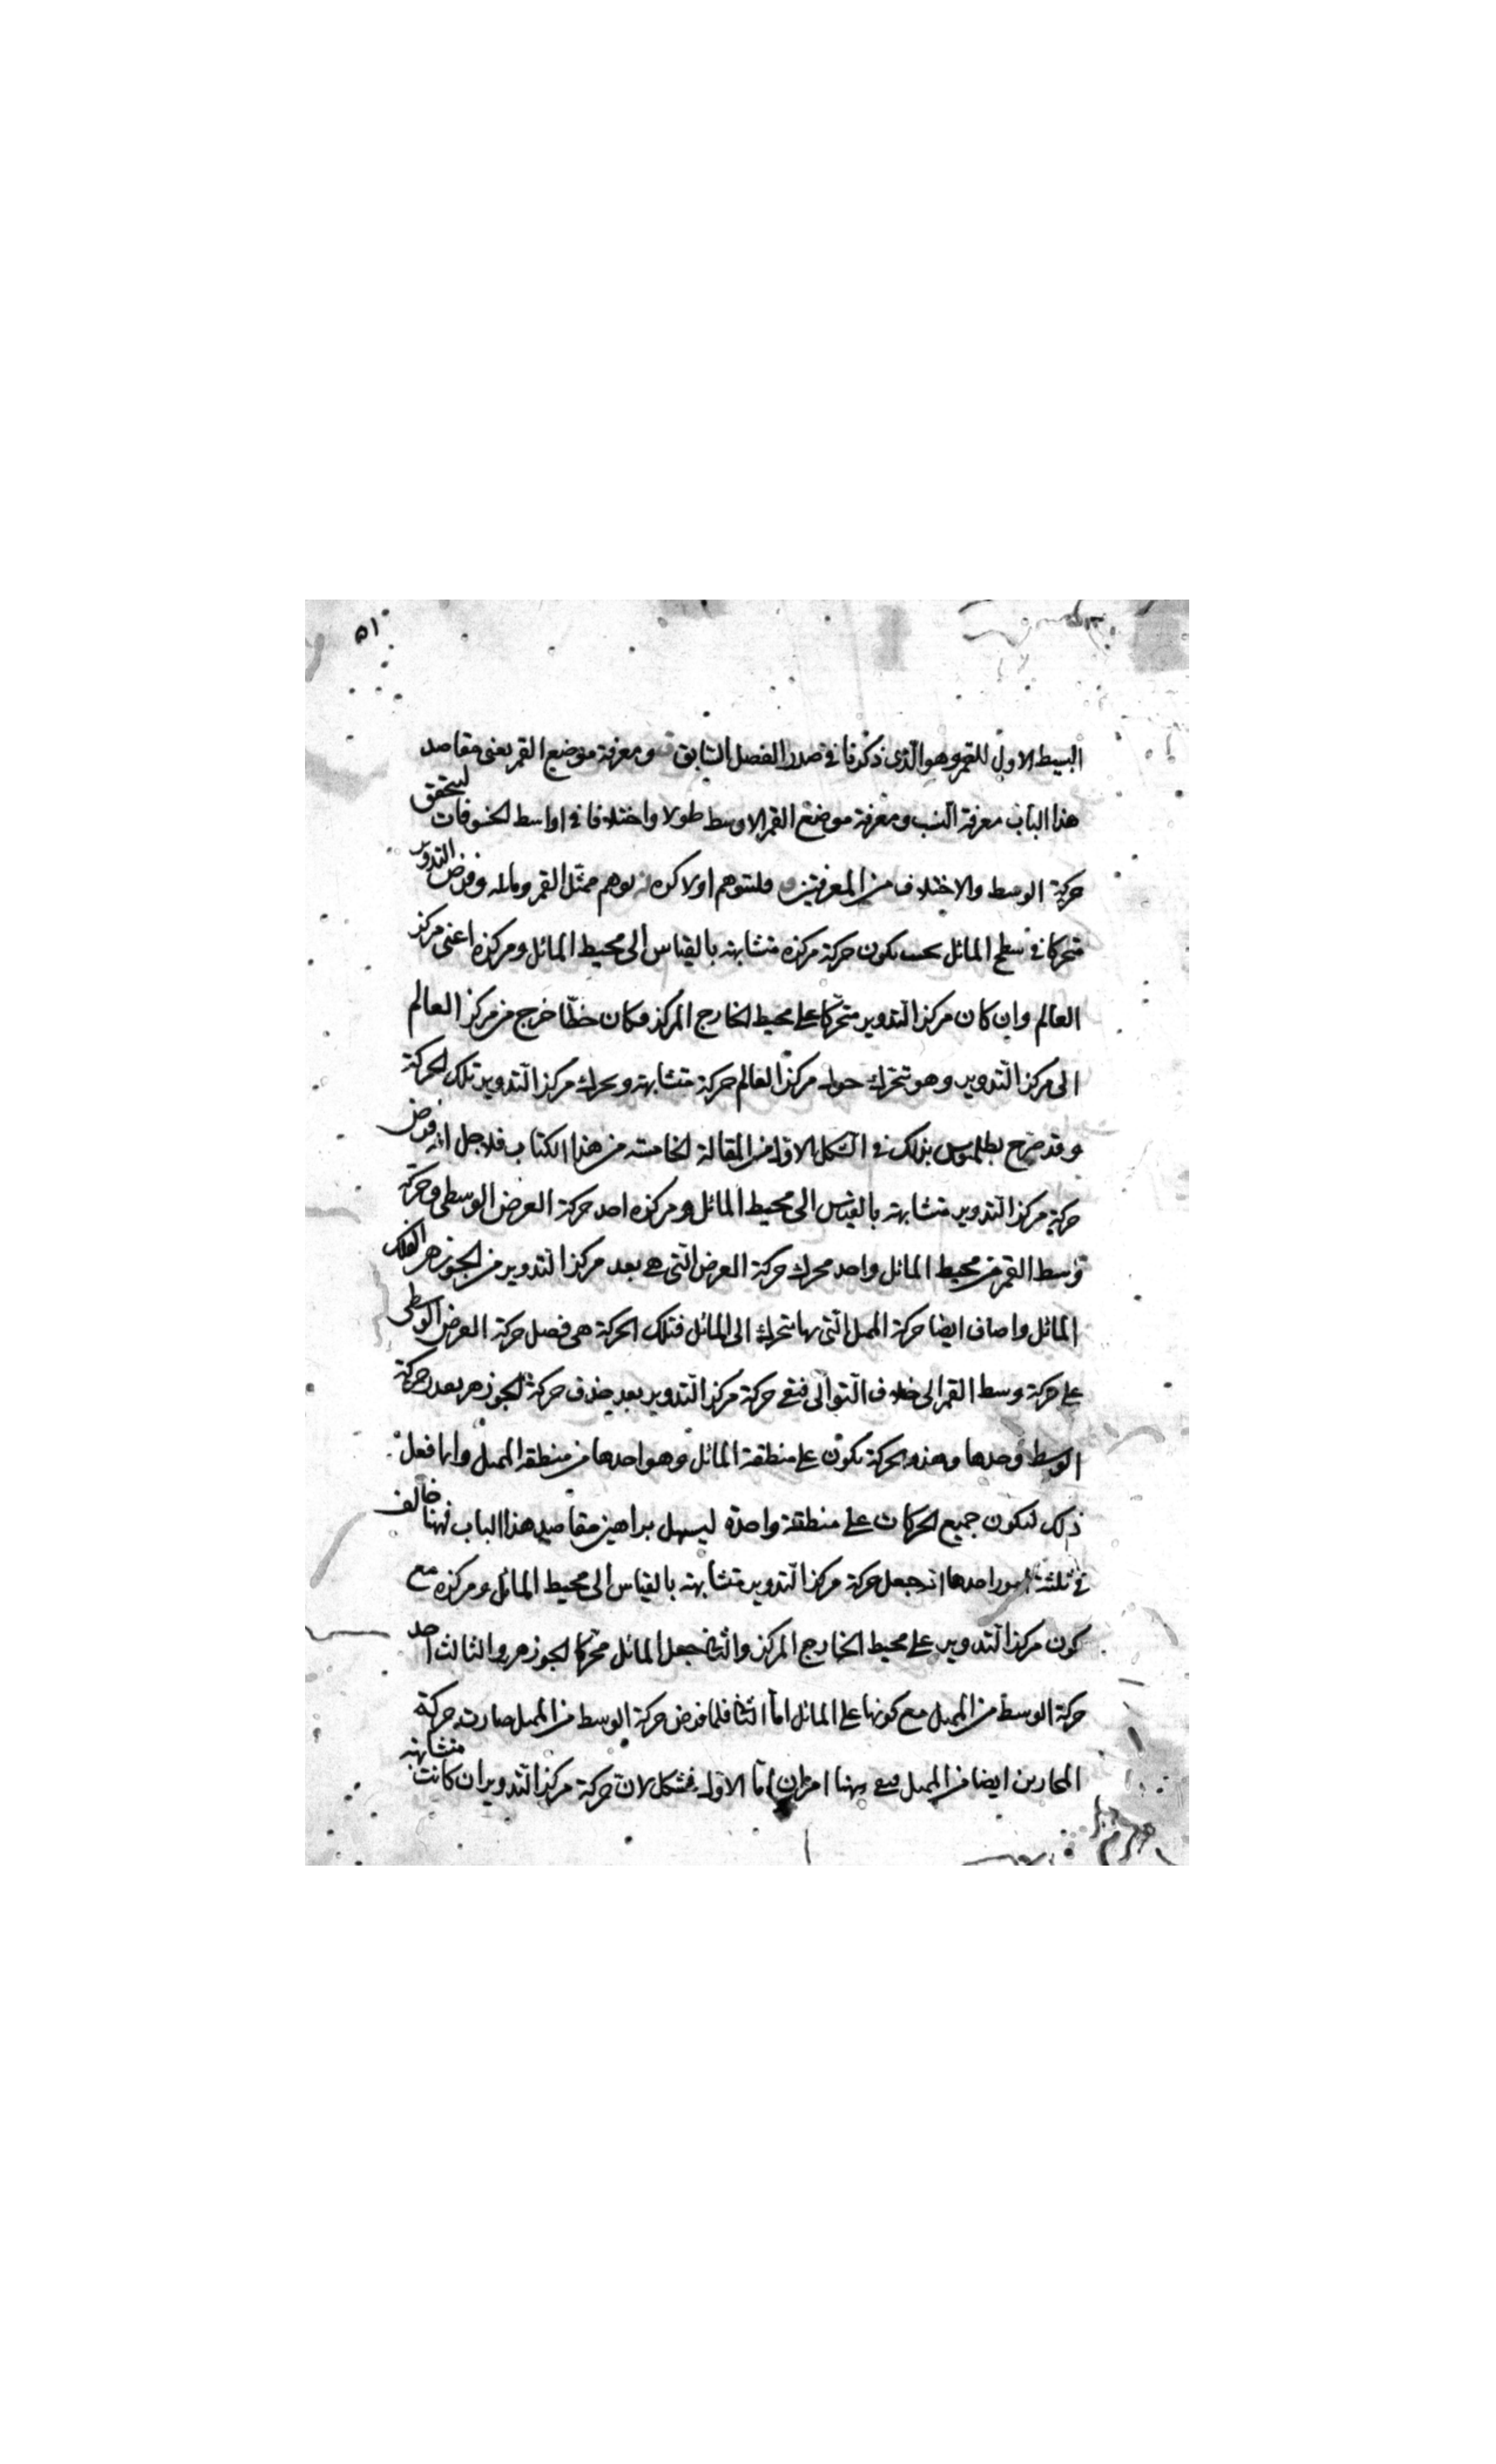 ٥١
البسيط الاول للقمر وهو الذى ذكرنا فى صدر الفصل السابق ومعرفة موضع القمر يعنى مقاصد
هذا الباب معرفة النسب ومعرفة موضع القمر الاوسط طولا واختلافا فى اواسط الخسوفات ليتحقق
حركة الوسط والاختلاف من المعرفتين فلنتوهم اولا كره توهم ممثل القمر ومائله وفرض التدوير
متحركا فى سطح المائل بحيث يكون حركة مركزه متشابهة بالقياس الى محيط المائل ومركزه اعنى مركز
العالم وان كان مركز التدوير متحركا على محيط الخارج المركز فكان خطا خرج من مركز العالم
الى مركز التدوير وهو تتحرك حول مركز العالم حركة متشابهة ويحرك مركز التدوير تلك الحركة
وقد صرح بطلميوس بذلك فى الشكل الاول من المقالة الخامسة من هذا الكتاب فلاجل انه فرض
حركة مركز التدوير متشابهة بالقياس الى محيط المائل ومركزه احد حركة العرض الوسطى وحركة
وسط القمر من محيط المائل واحد محرك حركة العرض التى هى بعد مركز التدوير من الجوزهر الفلك
المائل واضاف ايضا حركة الميل التى بها يتحرك الى المائل فتلك الحركة هى فضل حركة العرض الوسطى
على حركة وسط القمر الى خلاف التوالى فبقى حركة مركز التدوير بعد حذف حركة الجوزهر بعد حركة
الوسط وحدها وهذه الحركة تكون على منطقة المائل وهو احدها من منطقة الميل وانما فعل
ذلك لتكون جميع الحركات على منطقة واحدة ليسهل براهين مقاصد هذا الباب فهنا خالف
فى ثلثة امور احدها انه جعل حركة مركز التدوير متشابهة بالقياس الى محيط المائل ومركزه مع
كون مركز التدوير على محيط الخارج المركز والثانى جعل المائل محركا لجوزهر والثالث احد
حركة الوسط من الميل مع كونها على المائل اما الثانى فلما فرض حركة الوسط من الميل صارت حركة
ايضا من الميل فبقى ههنا امران اما الاول فمشكل لان حركة مركز التدوير ان كانت متشابهة